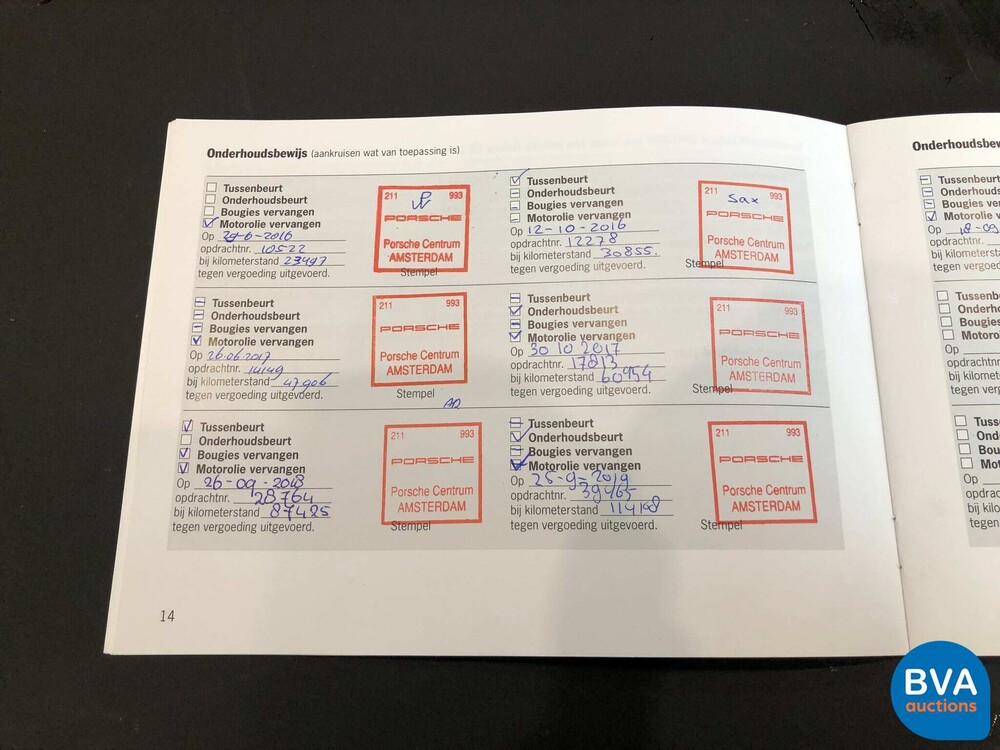 Onderhoudsbewijs (aankruisen wat van toepassing is)
Tussenbeurt
Onderhoudsbeurt
Bougies vervangen
Motorolie vervangen
Op 27-6-2016
opdrachtnr. 10522
bij kilometerstand 23497
tegen vergoeding uitgevoerd.
211 993
PORSCHE
Porsche Centrum
AMSTERDAM
Stempel
Tussenbeurt
Onderhoudsbeurt
Bougies vervangen
Motorolie vervangen
Op 12-10-2016
opdrachtnr. 12278
bij kilometerstand 30855.
tegen vergoeding uitgevoerd.
211 993
sax
PORSCHE
Porsche Centrum
AMSTERDAM
Stempel
Tussenbeurt
Onderhoudsbeurt
Bougies vervangen
Motorolie vervangen
Op 26.06.2017
opdrachtnr. 14149
bij kilometerstand 47906
tegen vergoeding uitgevoerd.
211 993
PORSCHE
Porsche Centrum
AMSTERDAM
Stempel
Tussenbeurt
Onderhoudsbeurt
Bougies vervangen
Motorolie vervangen
Op 30 10 2017
opdrachtnr. 17813
bij kilometerstand 60954
tegen vergoeding uitgevoerd.
211 993
PORSCHE
Porsche Centrum
AMSTERDAM
Stempel
Tussenbeurt
Onderhoudsbeurt
Bougies vervangen
Motorolie vervangen
Op 26-09-2018
opdrachtnr. 28764
bij kilometerstand 87425
tegen vergoeding uitgevoerd.
211 993
PORSCHE
Porsche Centrum
AMSTERDAM
Stempel
Tussenbeurt
Onderhoudsbeurt
Bougies vervangen
Motorolie vervangen
Op 25-9-2019
opdrachtnr. 39465
bij kilometerstand 114108
tegen vergoeding uitgevoerd.
211 993
PORSCHE
Porsche Centrum
AMSTERDAM
Stempel
14
Onderhoudsbew
Tussenbeurt
Onderhouds
Bougies ve
Motorolie v
Op 18-09
opdrachtnr.
bij kilometerst
tegen vergoedi
Tussenb
Onderho
Bougies
Motorol
Op
opdrachtnr
bij kilomet
tegen verg
Tuss
Ond
Bou
Mot
Op
opdrac
bij kilo
tegen
BVA
auctions